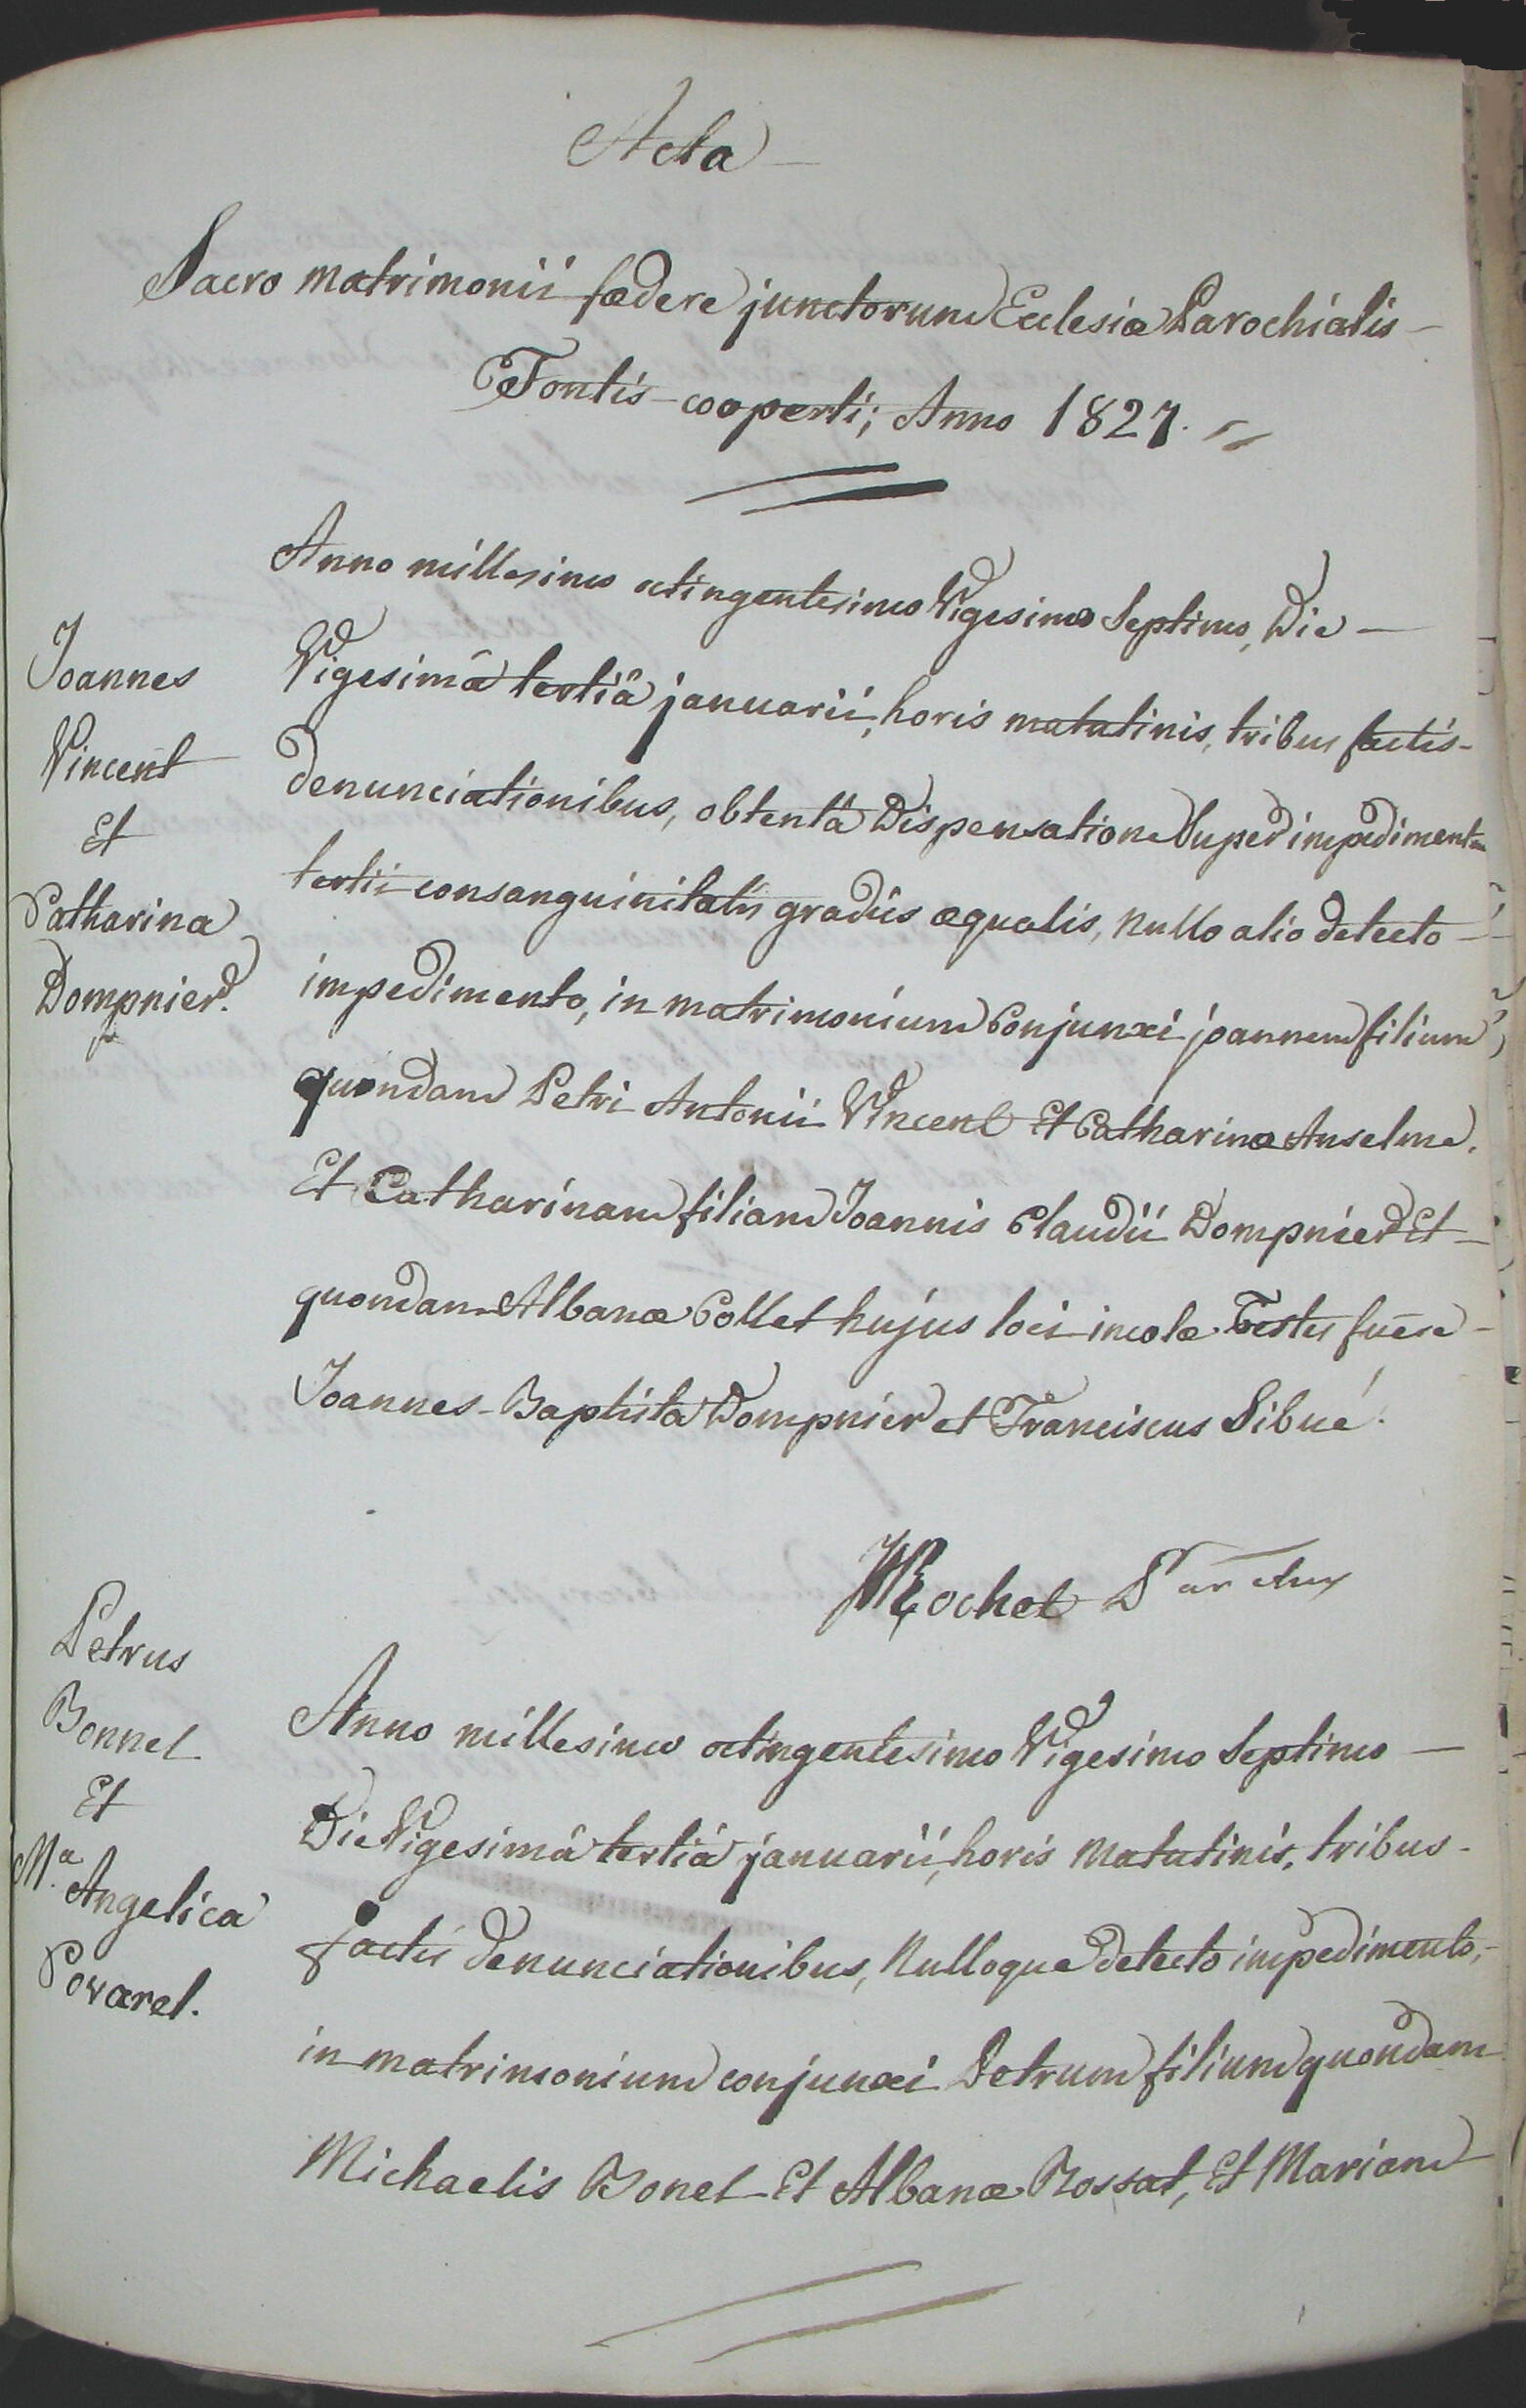 Acta
Sacro matrimonii fœdere junctorum Ecclesiæ Parochialis
Fontis-cooperti; Anno 1827.
Joannes
Vincent
Et
Catharina
Dompnier.
Anno millesimo octingentesimo Vigesimo Septimo, Die
Vigesimâ tertiâ januarii, horis matutinis, tribus factis
denunciationibus, obtentâ Dispensatione Super impedimento
tertii consanguinitatis gradûs æqualis, nullo alio detecto
impedimento, in matrimonium Conjunxi joannem filium
quondam Petri Antonii Vincent Et Catharinæ Anselme.
Et Catharinam filiam Joannis Claudii Dompnier Et
quondam Albanæ Collet hujus loci incolæ. Testes fuēre
Joannes-Baptista Dompnier et Franciscus Sibué.
Rochet
Petrus
Bonnel
Et
Mª. Angelica
Povarel.
Anno millesimo octingentesimo Vigesimo Septimo
Die Vigesimâ tertiâ januarii, horis Matutinis, tribus
factis denunciationibus, Nulloque detecto impedimento,
in matrimonium conjunxi Petrum filium quondam
Michaelis Bonel Et Albanæ Rossat, Et Mariam